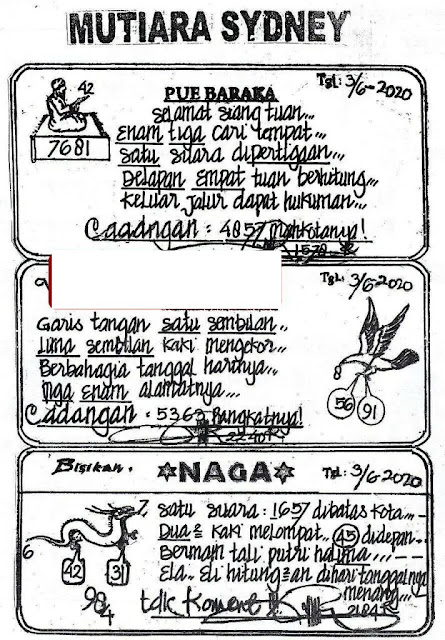 MUTIARA SYDNEY
Tgl: 3/6-2020
42
7681
PUE BARAKA
selamat siang tuan...
Enam tiga cari tempat...
Satu suara dipertigaan...
Delapan empat tuan berhitung,,,
Keluar jalur dapat hukuman...
Cadangan : 4857 mahkotanya!
Tgl: 3/6-2020
Garis tangan satu sembilan..
Lima sembilan kaki mengekor..
Berbahagia tanggal harinya...
Tiga Enam alamatnya...
Cadangan : 5363 Pangkatnya!
2240
56
91
Bisikan.
NAGA
Tgl: 3/6-2020
7. Satu suara : 1657 dibatas kota...
Dua² kaki melompat.. 45 didepan..
Bermain tali putri halima...
Ela.. Eli hitung²an dihari tanggalnya
menang...
6
42
31
98/4
tdk Koment